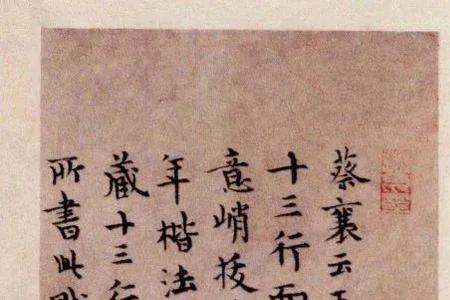 蔡襄云
十三行
意峭拔
年楷法
藏十三行
所書此